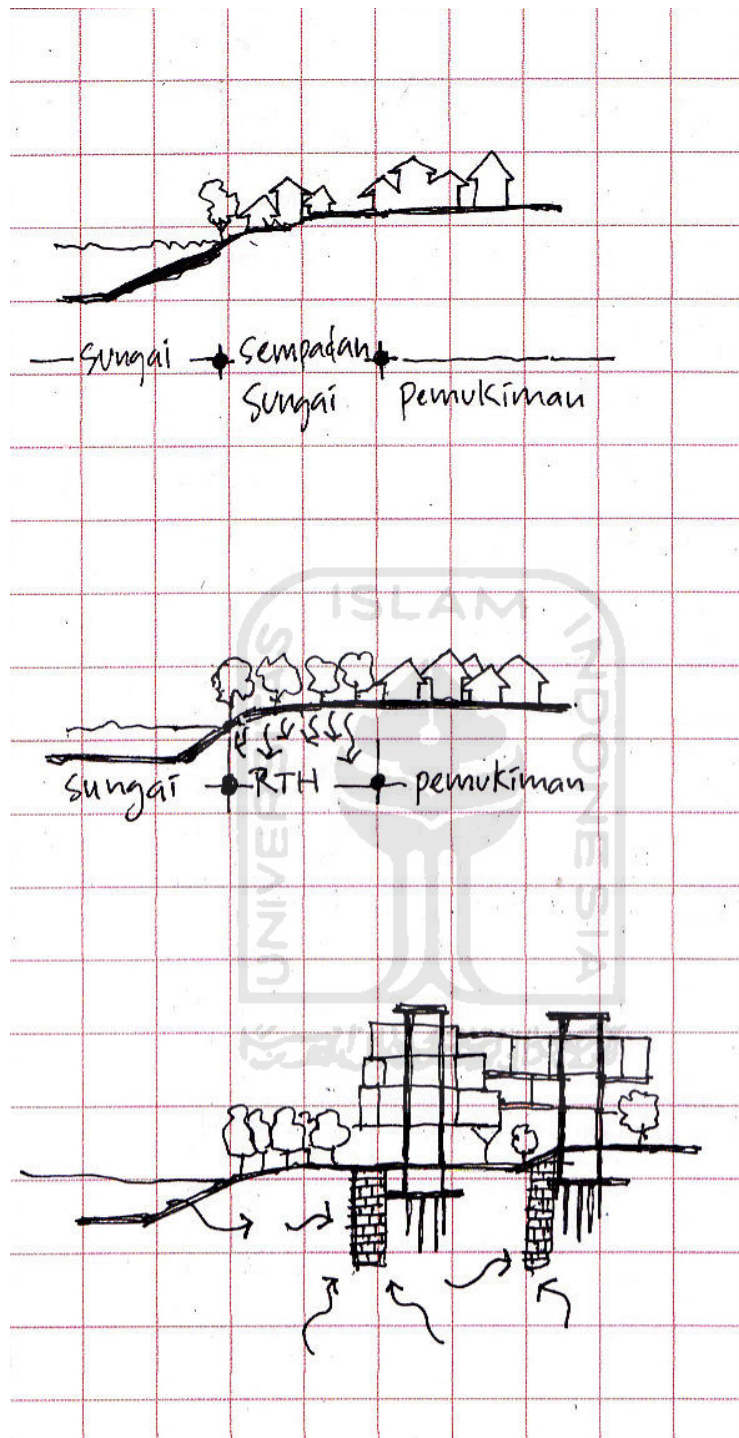 Sungai Sempadan
Sungai Pemukiman
ISLAM
UNIVERSITAS
INDONESIA
Sungai RTH pemukiman